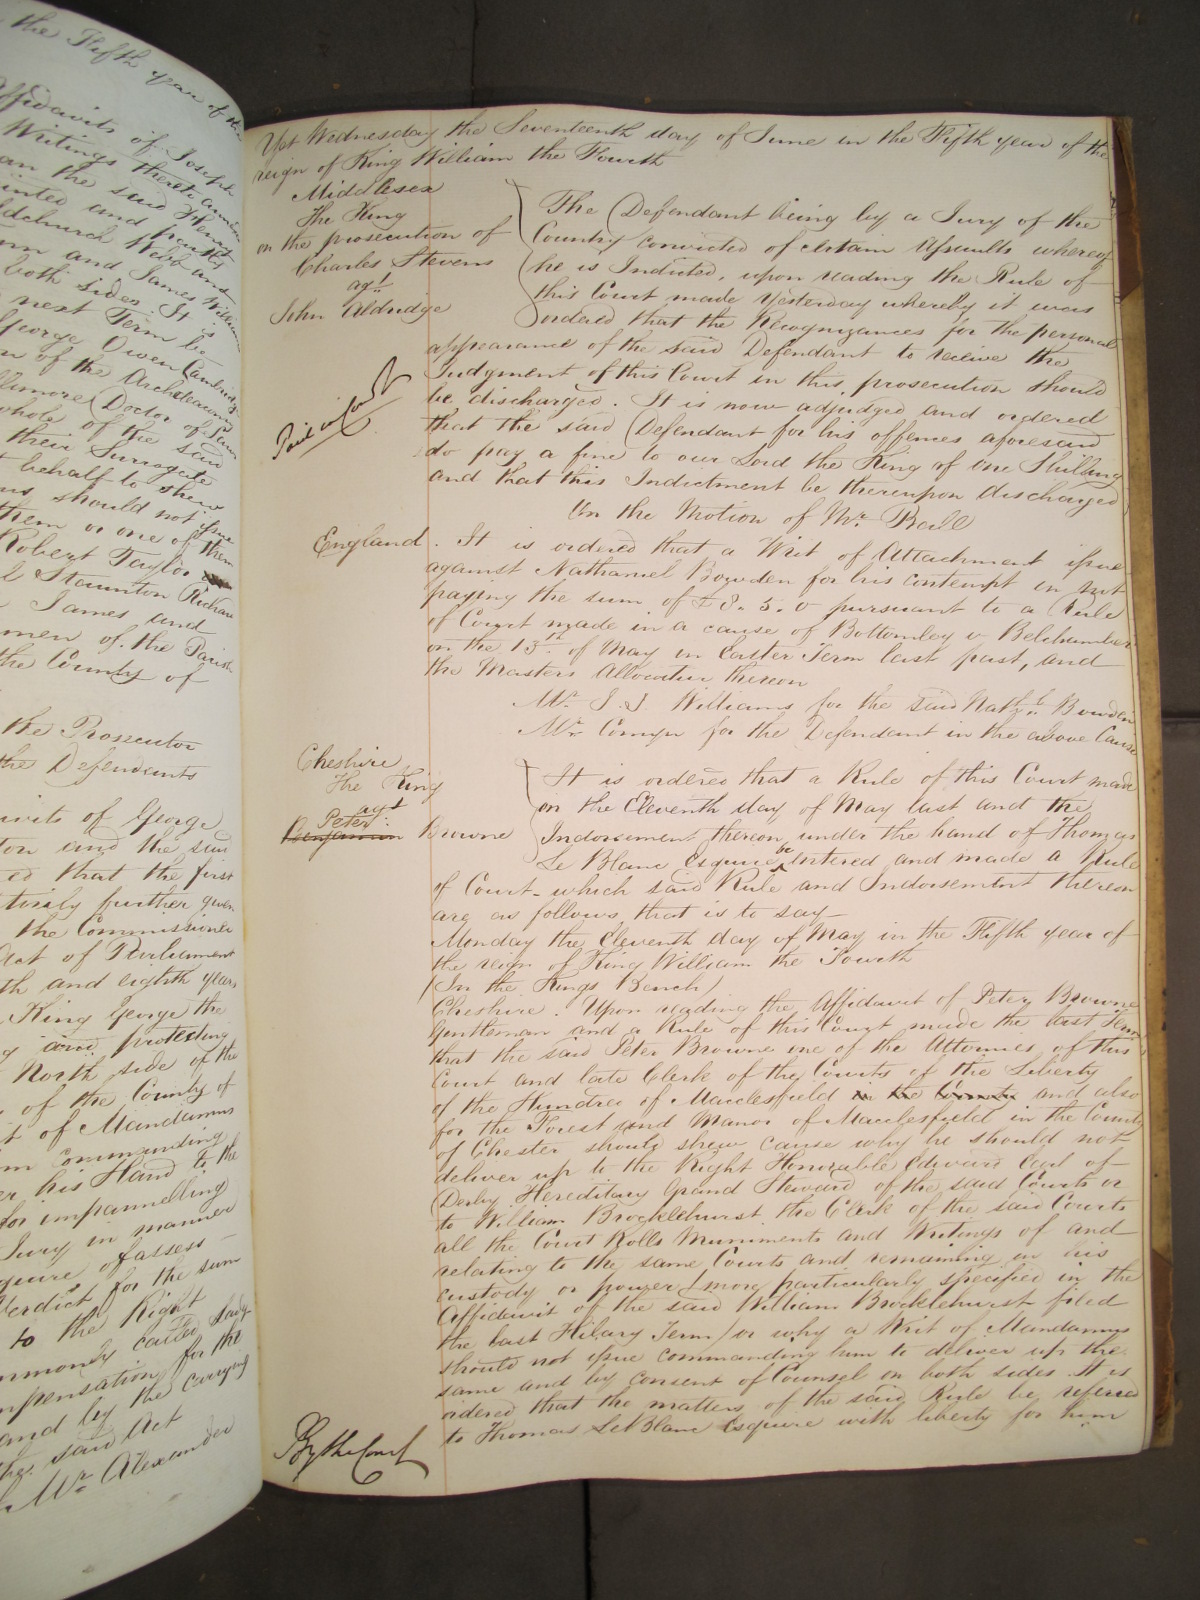 the Fifth year of the
Affidavits of Joseph
Writings thereto
the said Henry
and
Webb and
and James William
both sides It is
next Term be
George Owen Cambridge
of the Archdeaconry
Doctor of Laws
whole of the said
their Surrogate
behalf to shew
should not issue
them or one of them
Robert Taylor
Staunton Richard
James and
men of the Parish
the County of
the Prosecutor
the Defendants
of George
and the said
ed that the first
further given
the Commissioners
Act of Parliament
th and eighth years
King George the
and protecting
North side of the
of the County of
of Mandamus
commanding
his Hand to the
for impannelling
Jury in manner
of assess
Verdict for the sum
to the Right
commonly called Lady
compensation for the
and by the carrying
the said Act
Mr. Alexander
Yet Wednesday the Seventeenth day of June in the Fifth year of the
reign of King William the Fourth
Middlesex
The King
on the prosecution of
Charles Stevens
agt.
John Aldridge
The Defendant being by a Jury of the
Country convicted of certain Assaults whereof
he is Indicted, upon reading the Rule of
this Court made Yesterday whereby it was
ordered that the Recognizances for the personal
appearance of the said Defendant to receive the
Judgment of this Court in this prosecution should
be discharged. It is now adjudged and ordered
that the said Defendant for his offences aforesaid
do pay a fine to our Lord the King of one Shilling
and that this Indictment be thereupon discharged
Paid in Court
On the Motion of Mr. Beill
England. It is ordered that a Writ of Attachment issue
against Nathaniel Bowden for his contempt in not
paying the sum of £8. 5. 0 pursuant to a Rule
of Court made in a cause of Bottomley v Belchamber
on the 13th. of May in Easter Term last past, and
the Masters Allocatur thereon
Mr. J. J. Williams for the said Nathl. Bowden
Mr. Comyn for the Defendant in the above Cause
Cheshire
The King
agt.
Peter
Benjamin Browne
It is ordered that a Rule of this Court made
on the Eleventh day of May last and the
Indorsement thereon under the hand of Thomas
Le Blanc Esquire be entered and made a Rule
of Court which said Rule and Indorsement thereon
are as follows, that is to say
Monday the Eleventh day of May in the Fifth year of
the reign of King William the Fourth
(In the Kings Bench)
Cheshire. Upon reading the Affidavit of Peter Browne
Gentleman and a Rule of this Court made the last Term
that the said Peter Browne one of the Attornies of this
Court and late Clerk of the Courts of the Liberty
of the Hundred of Macclesfield in the County and also
for the Forest and Manor of Macclesfield in the County
of Chester should shew cause why he should not
deliver up to the Right Honorable Edward Earl of
Derby Hereditary Grand Steward of the said Courts or
to William Brocklehurst the Clerk of the said Courts
all the Court Rolls Muniments and Writings of and
relating to the same Courts and remaining in his
custody or power (more particularly specified in the
Affidavit of the said William Brocklehurst filed
the last Hilary Term) or why a Writ of Mandamus
should not issue commanding him to deliver up the
same and by consent of Counsel on both sides It is
ordered that the matters of the said Rule be referred
to Thomas Le Blanc Esquire with liberty for him
By the Court